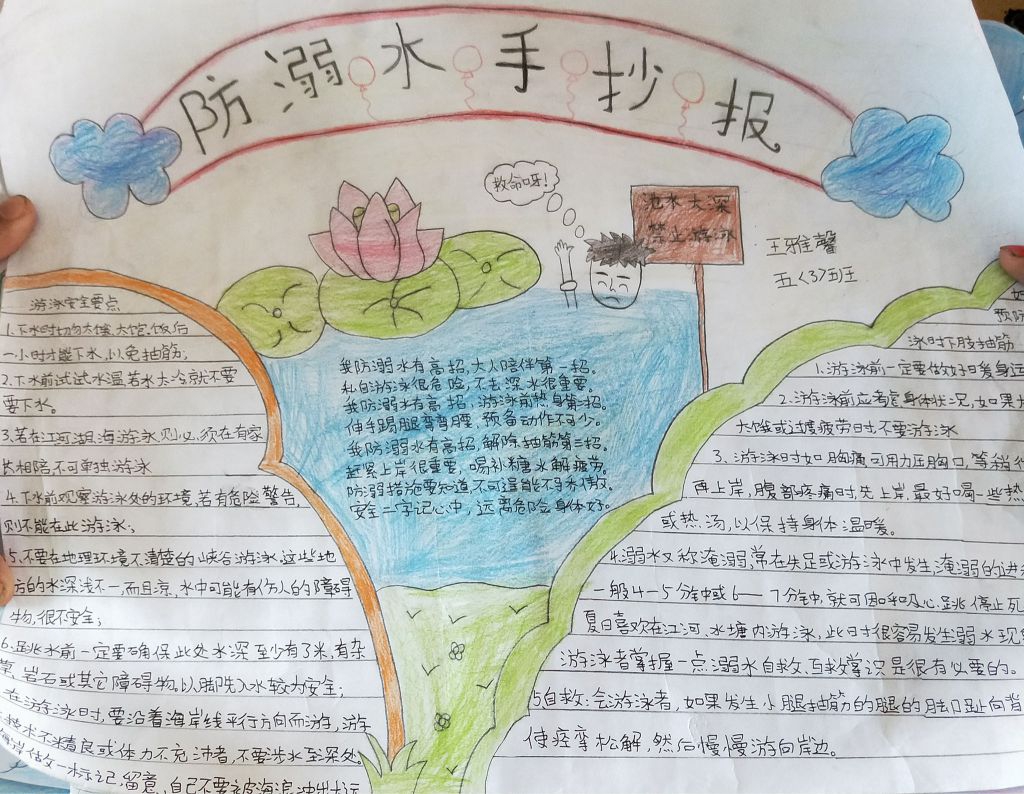 防溺水手抄报
救命呀!
池水太深
禁止游泳
王雅馨
五<3>班
游泳安全要点
1.下水时切勿太饿、太饱.饭后
一小时才能下水,以免抽筋;
2.下水前试试水温,若水太冷就不要
要下水。
3.若在江河湖海游泳,则必须在有家
长相陪不可单独游泳
4.下水前观察游泳处的环境,若有危险警告,
则不能在此游泳;
5.不要在地理环境不清楚的峡谷游泳.这些地
方的水深浅不一,而且凉,水中可能有伤人的障碍
物,很不安全;
6.跳水前一定要确保此处水深至少有了米,有杂
草,岩石或其它障碍物.以脚先入水较为安全;
在游泳时,要沿着海岸线平行方向而游,游
技术不精良或体力不充沛者,不要涉水至深处。
岸做一标记,留意,自己不要被海浪冲出太远
我防溺水有高招,大人陪伴第一招。
私自游泳很危险,不去深水很重要。
我防溺水有高招,游泳前热身第二招。
伸手踢腿弯弯腰,预备动作不可少。
我防溺水有高招,解除抽筋第三招。
赶紧上岸很重要,喝补糖水解疲劳。
防溺措施要知道,不可逞能不予水傲。
安全二字记心中,远离危险身体好。
预防
泳时下肢抽筋
1.游泳前一定要做好暖身运
2.游泳前应考虑身体状况,如果太
大饿或过度疲劳时,不要游泳
3、游泳时如胸痛,可用力压胸口,等稍
再上岸,腹部疼痛时,先上岸,最好喝一些热
或热汤,以保持身体温暖。
4.溺水又称淹溺,常在失足或游泳中发生,淹溺的进
一般4—5分钟或6—7分钟,就可因呼吸心跳停止死
夏日喜欢在江河、水塘内游泳,此时很容易发生溺水现
游泳者掌握一点溺水自救、互救常识是很有必要的。
5自救:会游泳者,如果发生小腿抽筋的腿的脚趾向背
使痉挛松解,然后慢慢游向岸边。